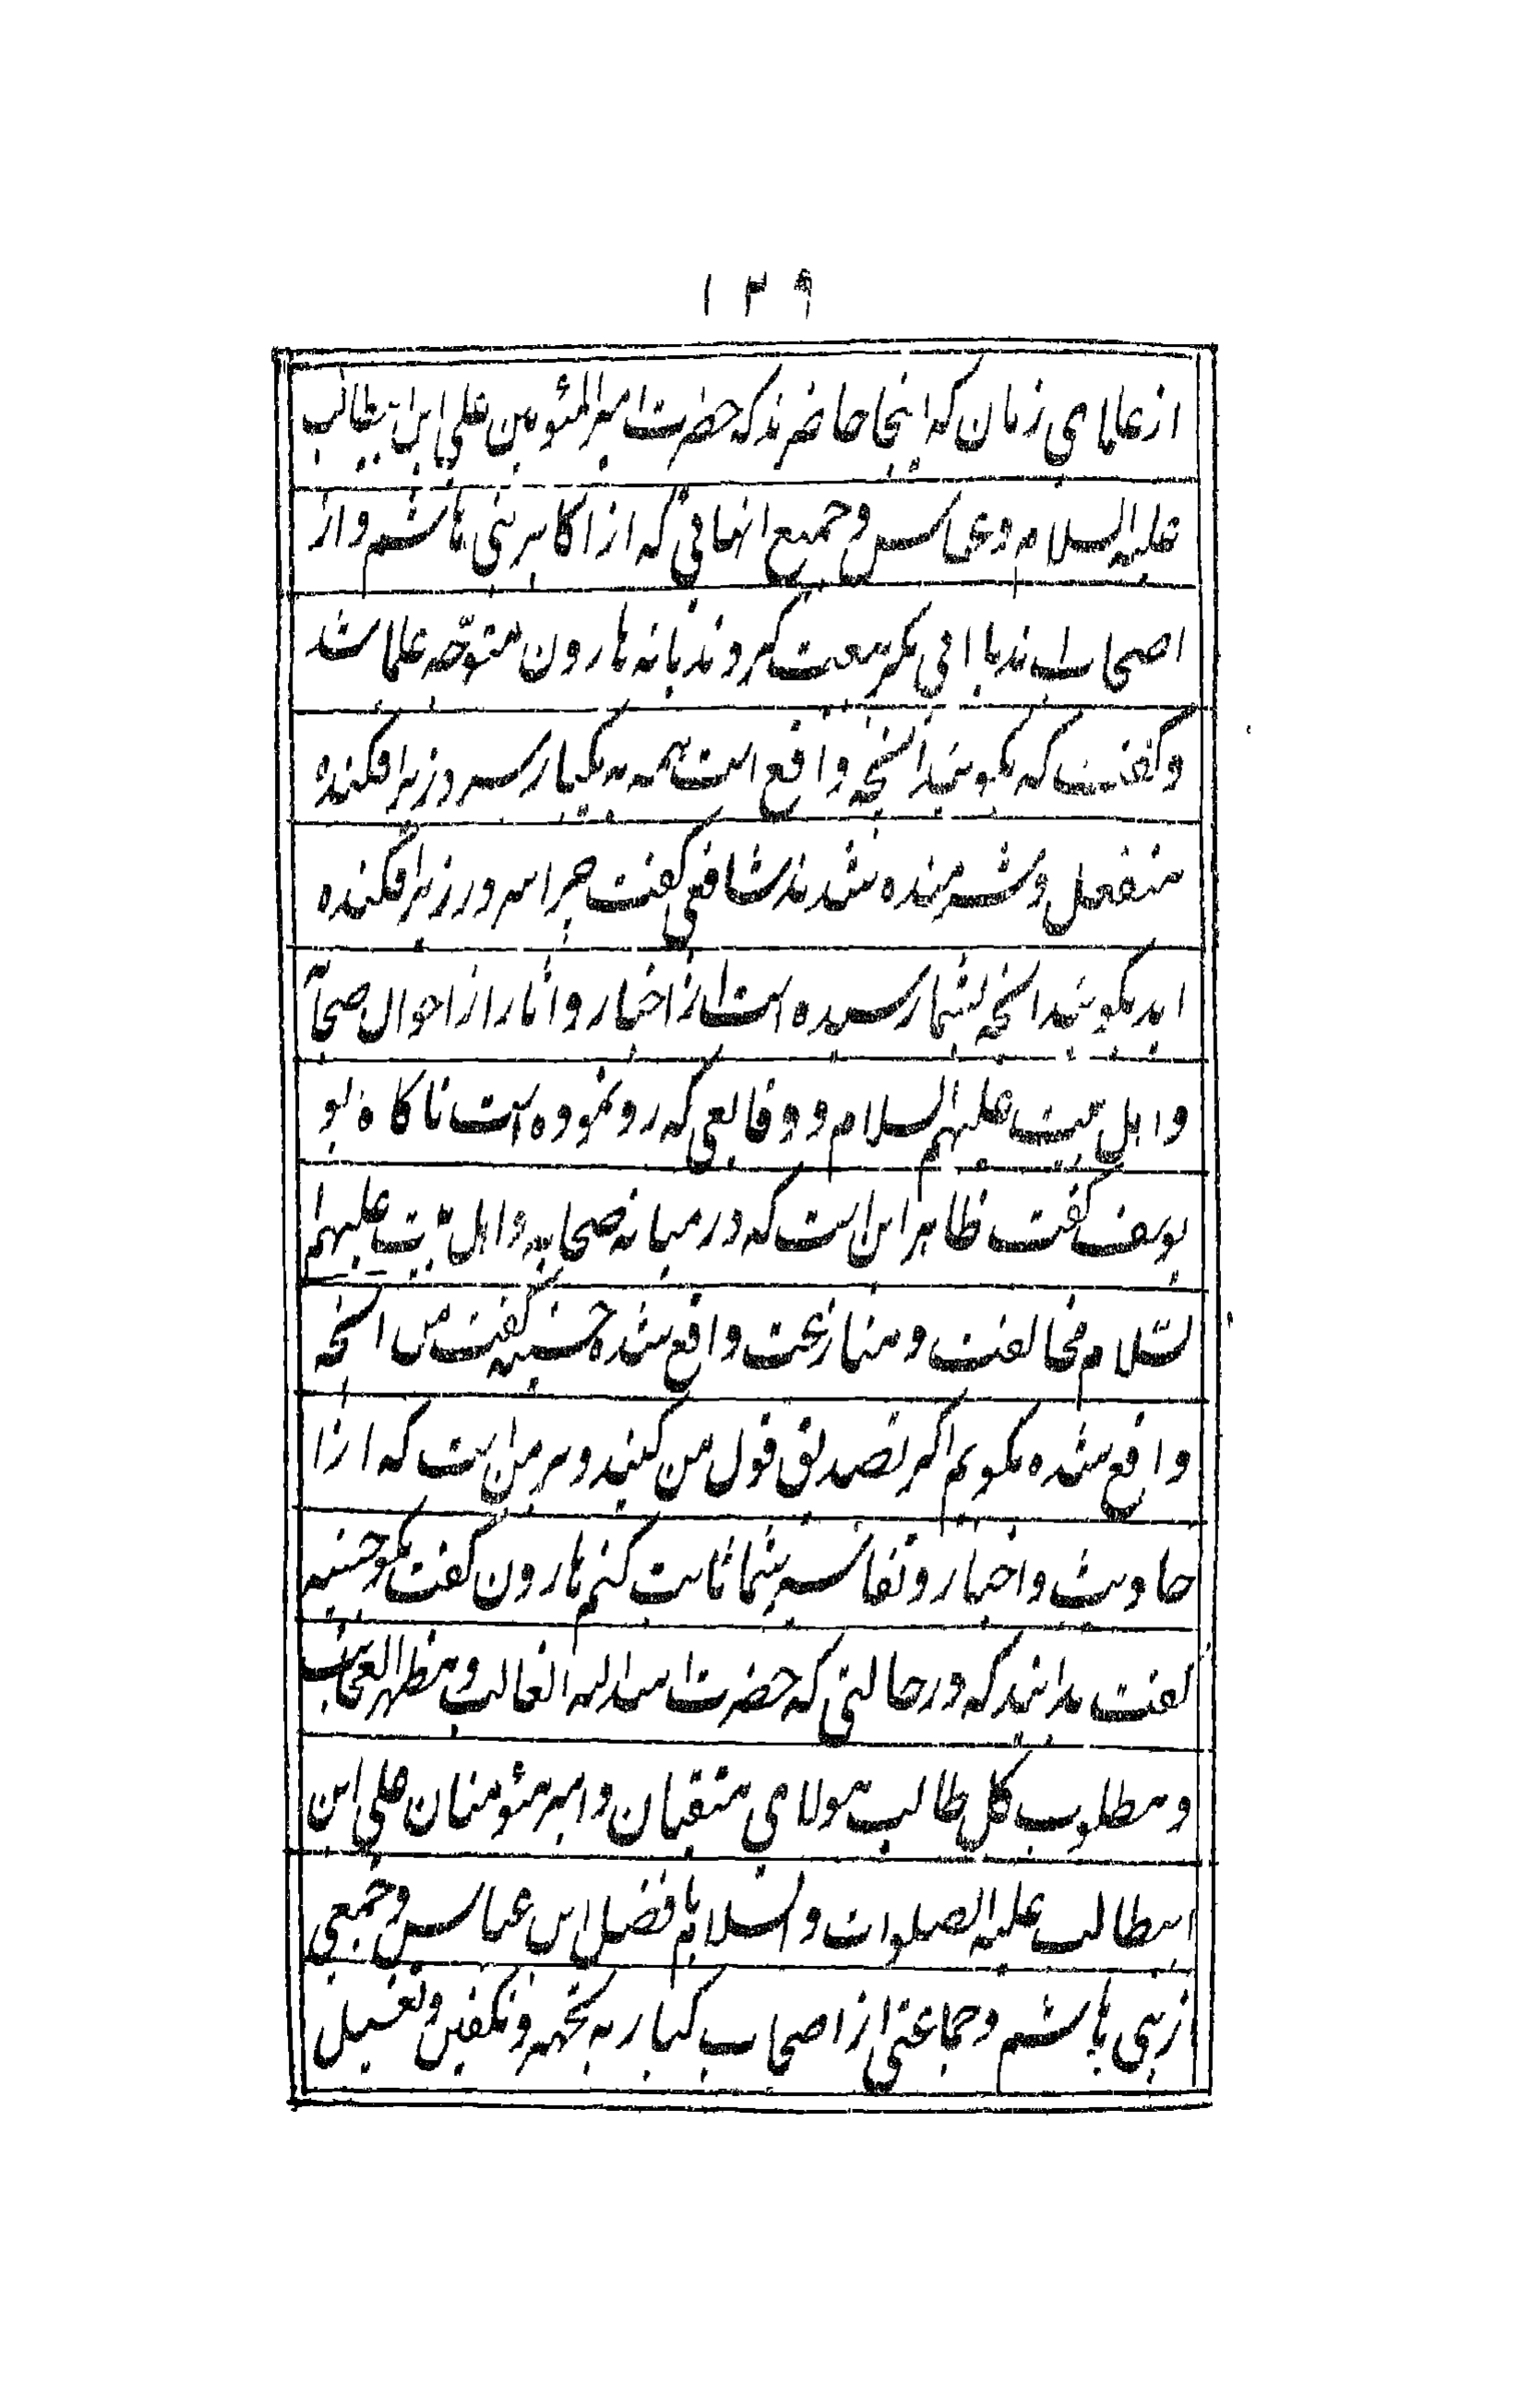 ۱۳۹
از علمای زمان که اینجا حاضرند که حضرت امیرالمئومنین علی ابن ابیطالب
علیه السلام و عباس و جمیع انهائی که از اکابر بنی هاشم و از
اصحاب اند با ابی بکر بیعت کردند یا نه هارون متوجّه علما شد
و گفت که بگویید انچه واقع است همه به یکبار سر در زیر افکنده
منفعل و شرمنده شدند شافعی گفت چرا سر در زیر افکنده
اید بگویید انچه بشما رسیده است از اخبار و اثار از احوال صحابه
و اهل بیت علیهم السلام و وقایعی که رو نموده است ناگاه بو
یوسف گفت ظاهر این است که در میانه صحابه و اهل بیت علیهم ا
لسّلام مخالفت و منازعت واقع شده حسنیه گفت من انچه
واقع شده بگویم اگر تصدیق قول من کنید و بر من است که از ا
حادیث و اخبار و تفاسیر شما ثابت کنم هارون گفت بگو حسنیه
گفت بدانید که در حالتی که حضرت اسد الله الغالب و مظهر العجایب
و مطلوب کل طالب مولای متقیان و امیر مئومنان علی ابن
ابیطالب علیه الصلوات و السلام با فضل ابن عباس و جمعی
از بنی هاشم و جماعتی از اصحاب کبار به تجهیز و تکفین و تغسیل